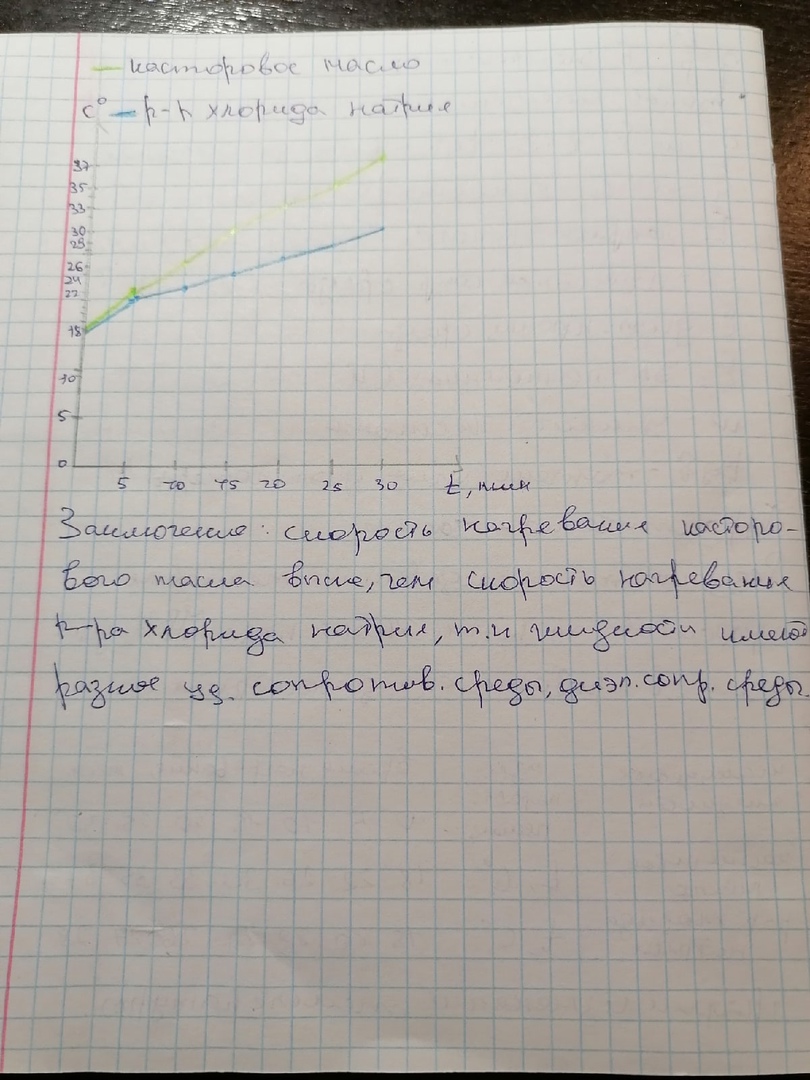 касторовое масло
C° р-р хлорида натрия
37
35
33
30
28
26
24
22
18
10
5
0
5 10 15 20 25 30 t, мин
Заключение: скорость нагревания касторо-
вого масла выше, чем скорость нагревания
р-ра хлорида натрия, т.к жидкости имеют
разное уд. сопротив. среды, диэл. сопр. среды.